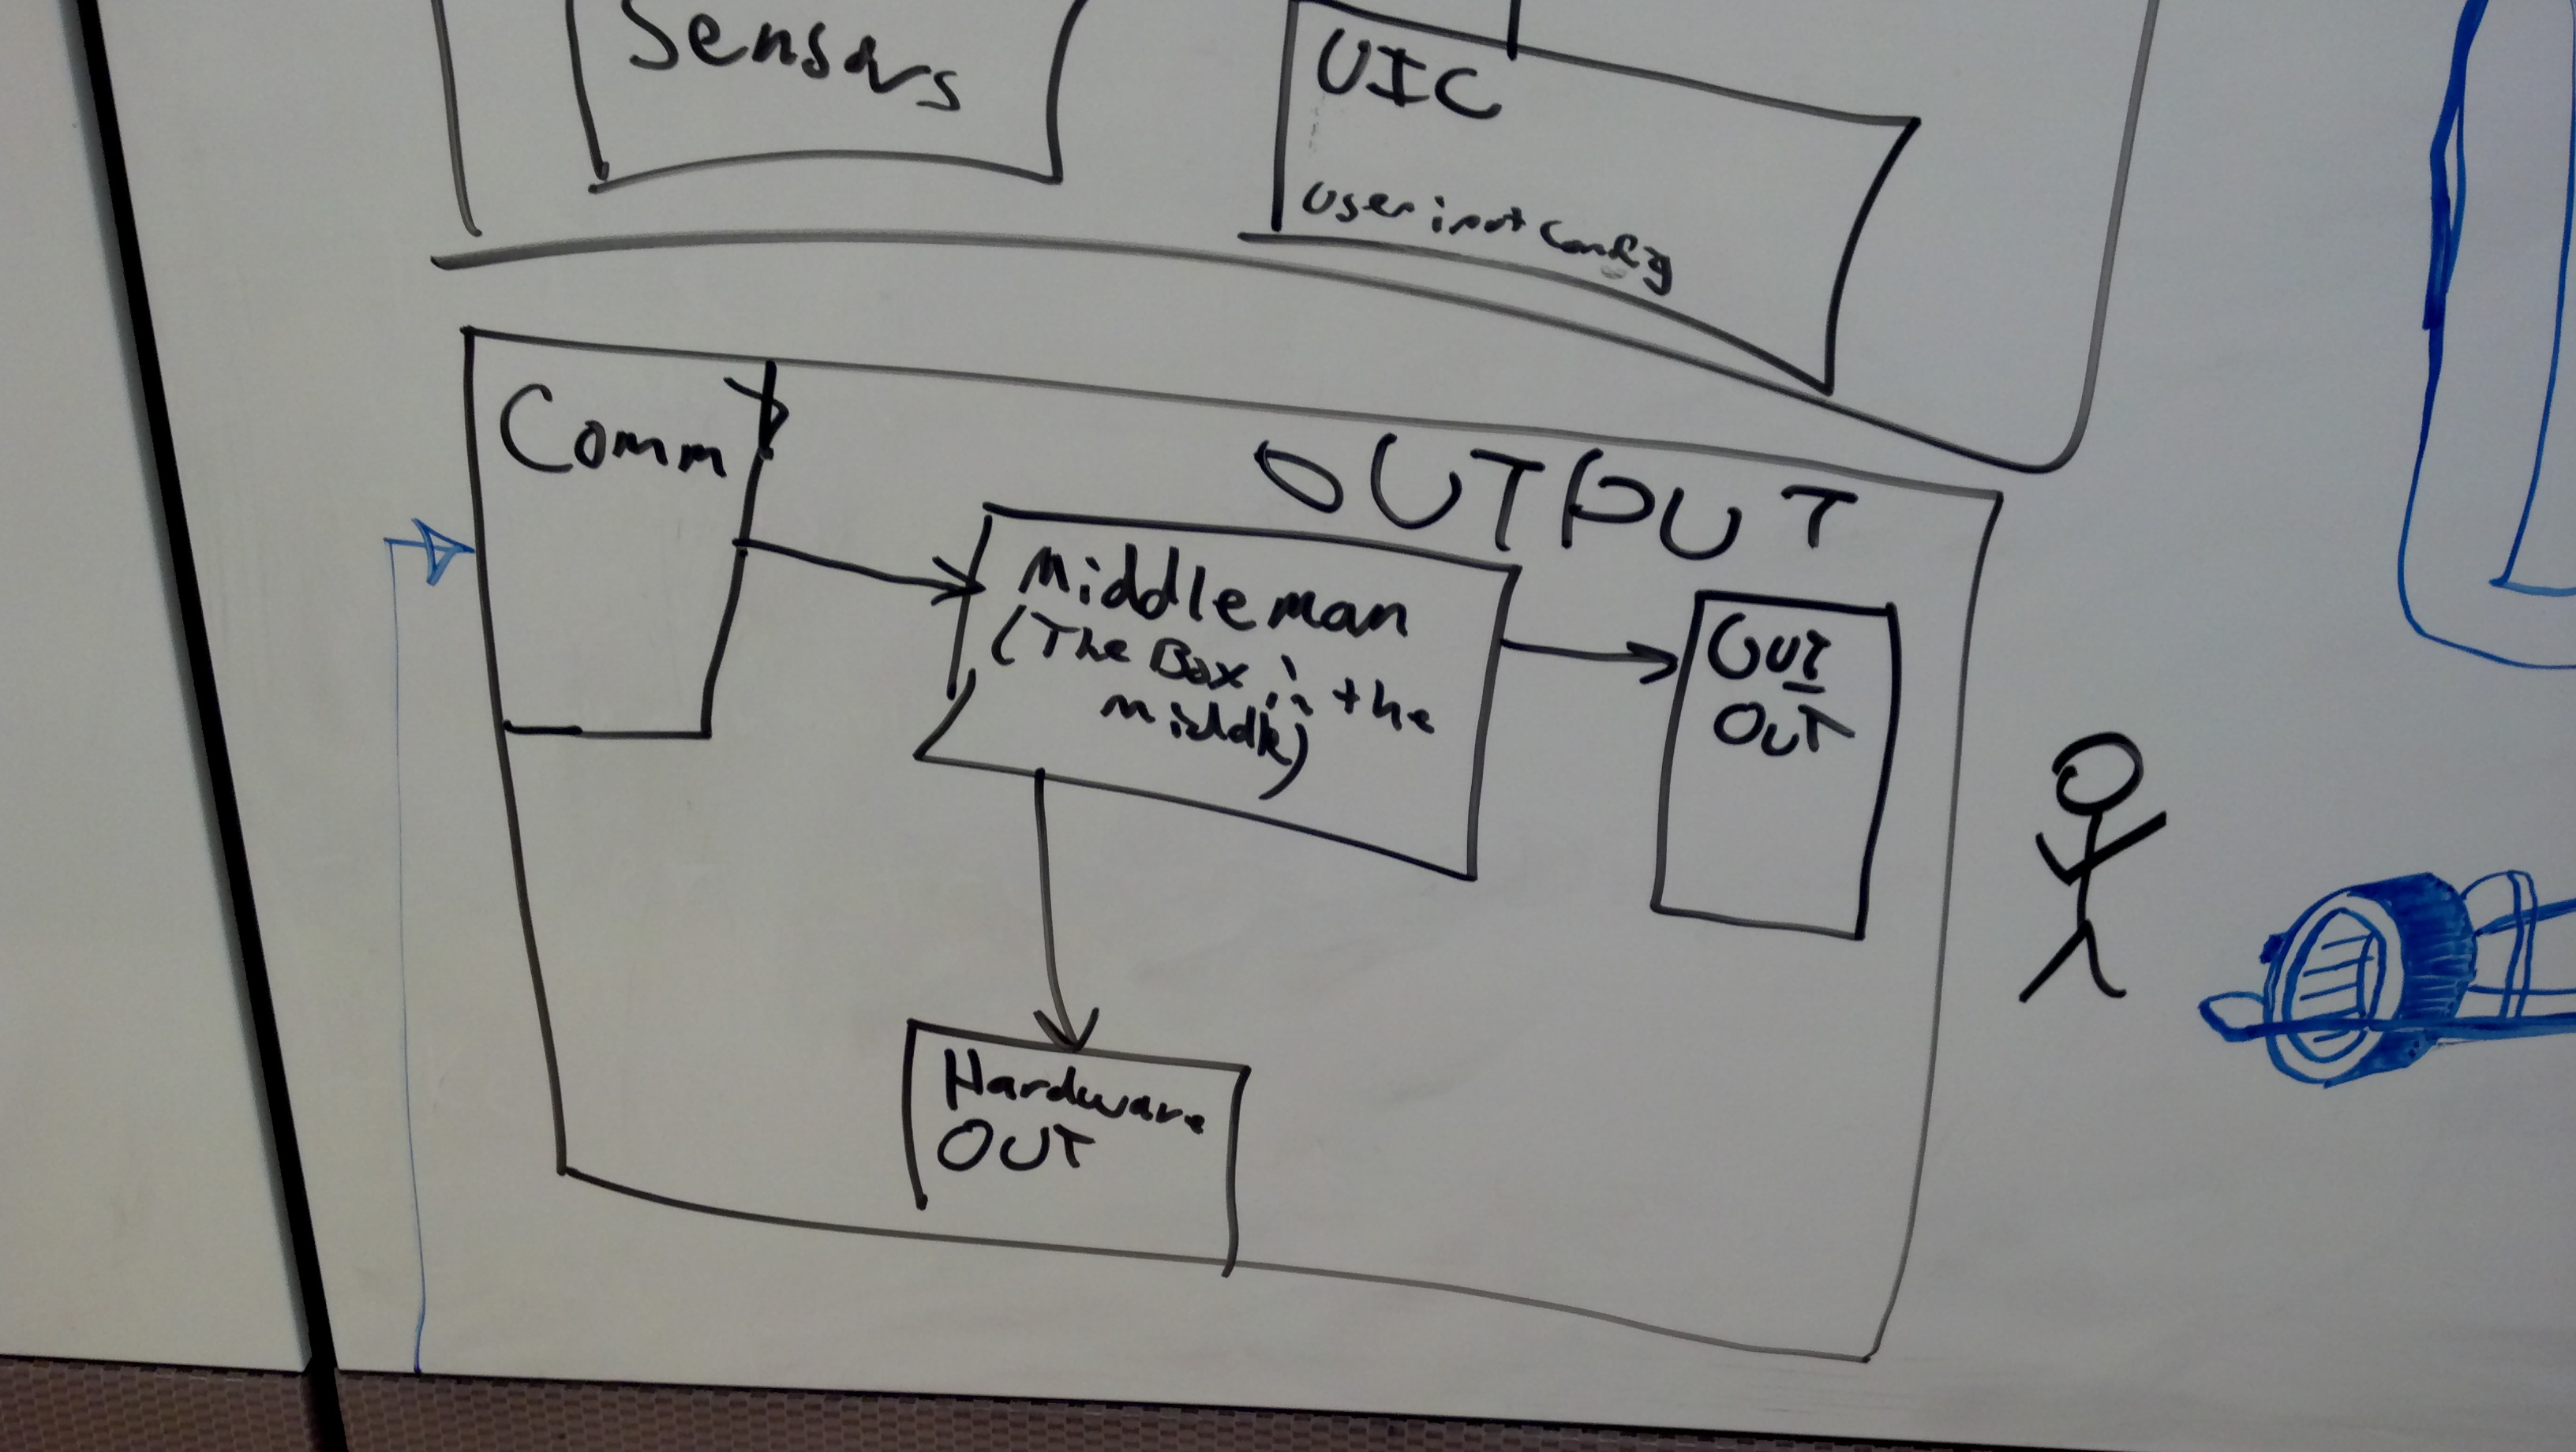 Sensors
UIC
User input Config
Comm
OUTPUT
Middleman
(The Box in the
middle)
OUT
Hardware
OUT